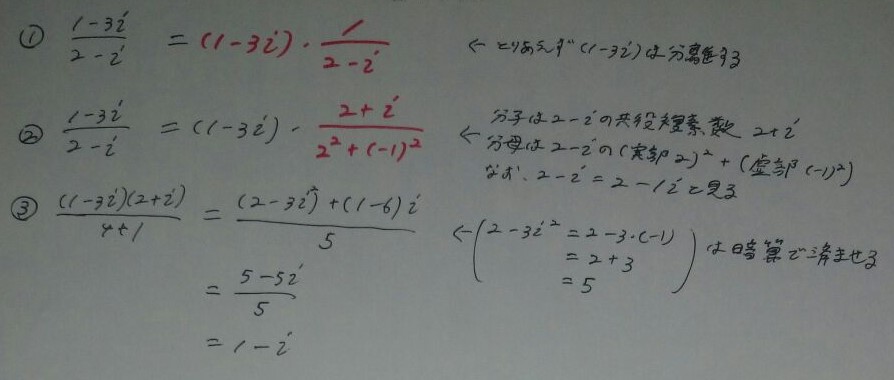 ① (1-3i)/(2-i) = (1-3i)・1/(2-i) ← とりあえず (1-3i)は分離する
② (1-3i)/(2-i) = (1-3i)・(2+i)/(2²+(-1)²) ← 分子は2-iの共役複素数 2+i
分母は2-iの(実部2)²+(虚部(-1)²)
なお、2-i=2-1iと見る
③ (1-3i)(2+i)/(4+1) = ((2-3i²)+(1-6)i)/5
= (5-5i)/5
= 1-i
←(2-3i²=2-3・(-1)
=2+3
=5) は暗算で済ませる